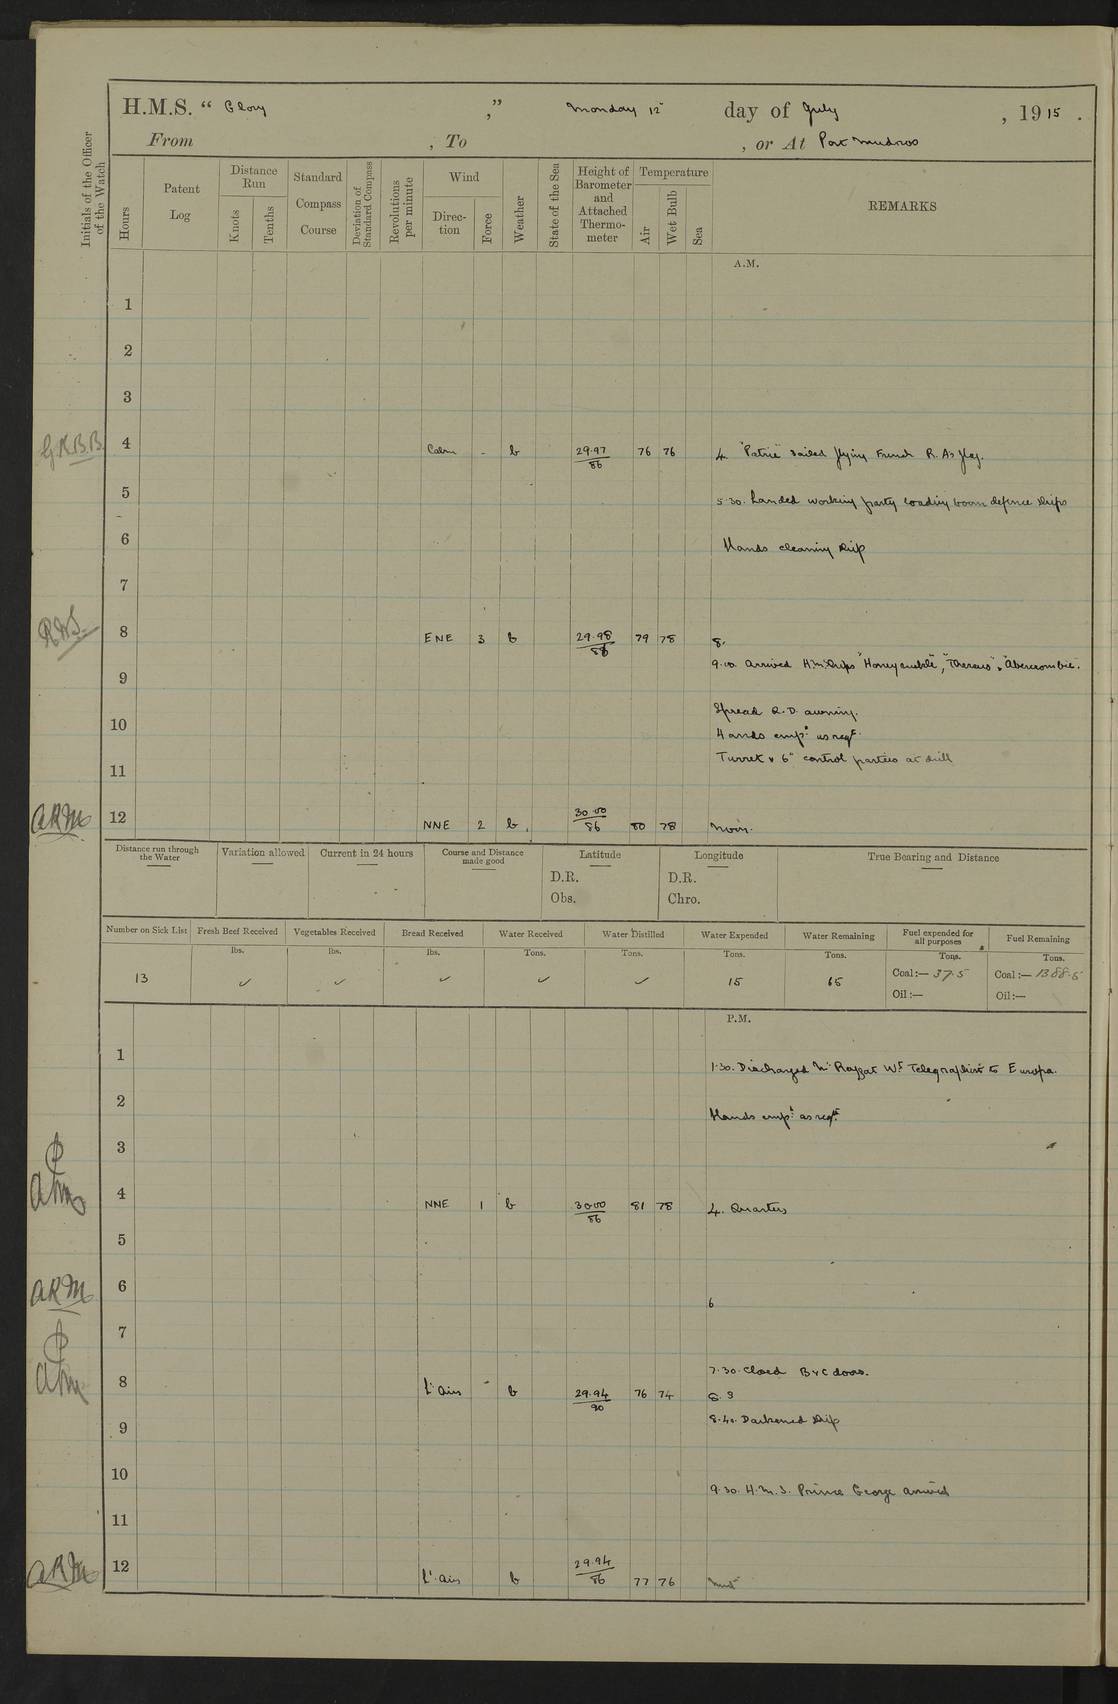 H.M.S. “ Glory ,” Monday 12th day of July , 1915 .
From , To , or At Port Mudros
Initials of the Officer of the Watch
Hours
Patent Log
Distance Run
Knots
Tenths
Standard Compass Course
Deviation of Standard Compass
Revolutions per minute
Wind
Direc-tion
Force
Weather
State of the Sea
Height of Barometer and Attached Thermo-meter
Temperature
Air
Wet Bulb
Sea
REMARKS
A.M.
1
2
3
G.K.B.B. 4 Calm - b 29.97/86 76 76 4. "Patrie" sailed flying French R. A's flag.
5 5.30. Landed working party loading boom defence ships
6 Hands cleaning ship
7
8 ENE 3 b 29.98/88 79 78 8.
9.00 Arrived H.M. Ships "Honeysuckle", "Theseus", "Abercrombie".
9
Spread Q.D. awning.
10 Hands emp.d as req.d
Turret & 6" control parties at drill
11
ARM 12 NNE 2 b. 30.00/86 80 78 Noon.
Distance run through the Water
Variation allowed
Current in 24 hours
Course and Distance made good
Latitude
D.R.
Obs.
Longitude
D.R.
Chro.
True Bearing and Distance
Number on Sick List
Fresh Beef Received
Vegetables Received
Bread Received
Water Received
Water Distilled
Water Expended
Water Remaining
Fuel expended for all purposes
Fuel Remaining
lbs. lbs. lbs. Tons. Tons. Tons. Tons. Tons. Tons.
13 ✓ ✓ ✓ ✓ ✓ 15 65 Coal:— 37.5 Coal:— 1388.5
Oil:— Oil:—
P.M.
1 1.30. Discharged Mr W.T. Telegraphist to Europa.
2 Hands emp.d as req.d
3
4 NNE 1 b 30.00/86 81 78 4. Quarters
5
ARM 6 6
7
7.30. Closed B & C doors.
8 L't Airs - b 29.94/90 76 74 8.
8.40. Darkened ship
9
10 9.30. H.M.S. Prince George arrived
11
ARM 12 L't Airs b 29.94/86 77 76 Mid't